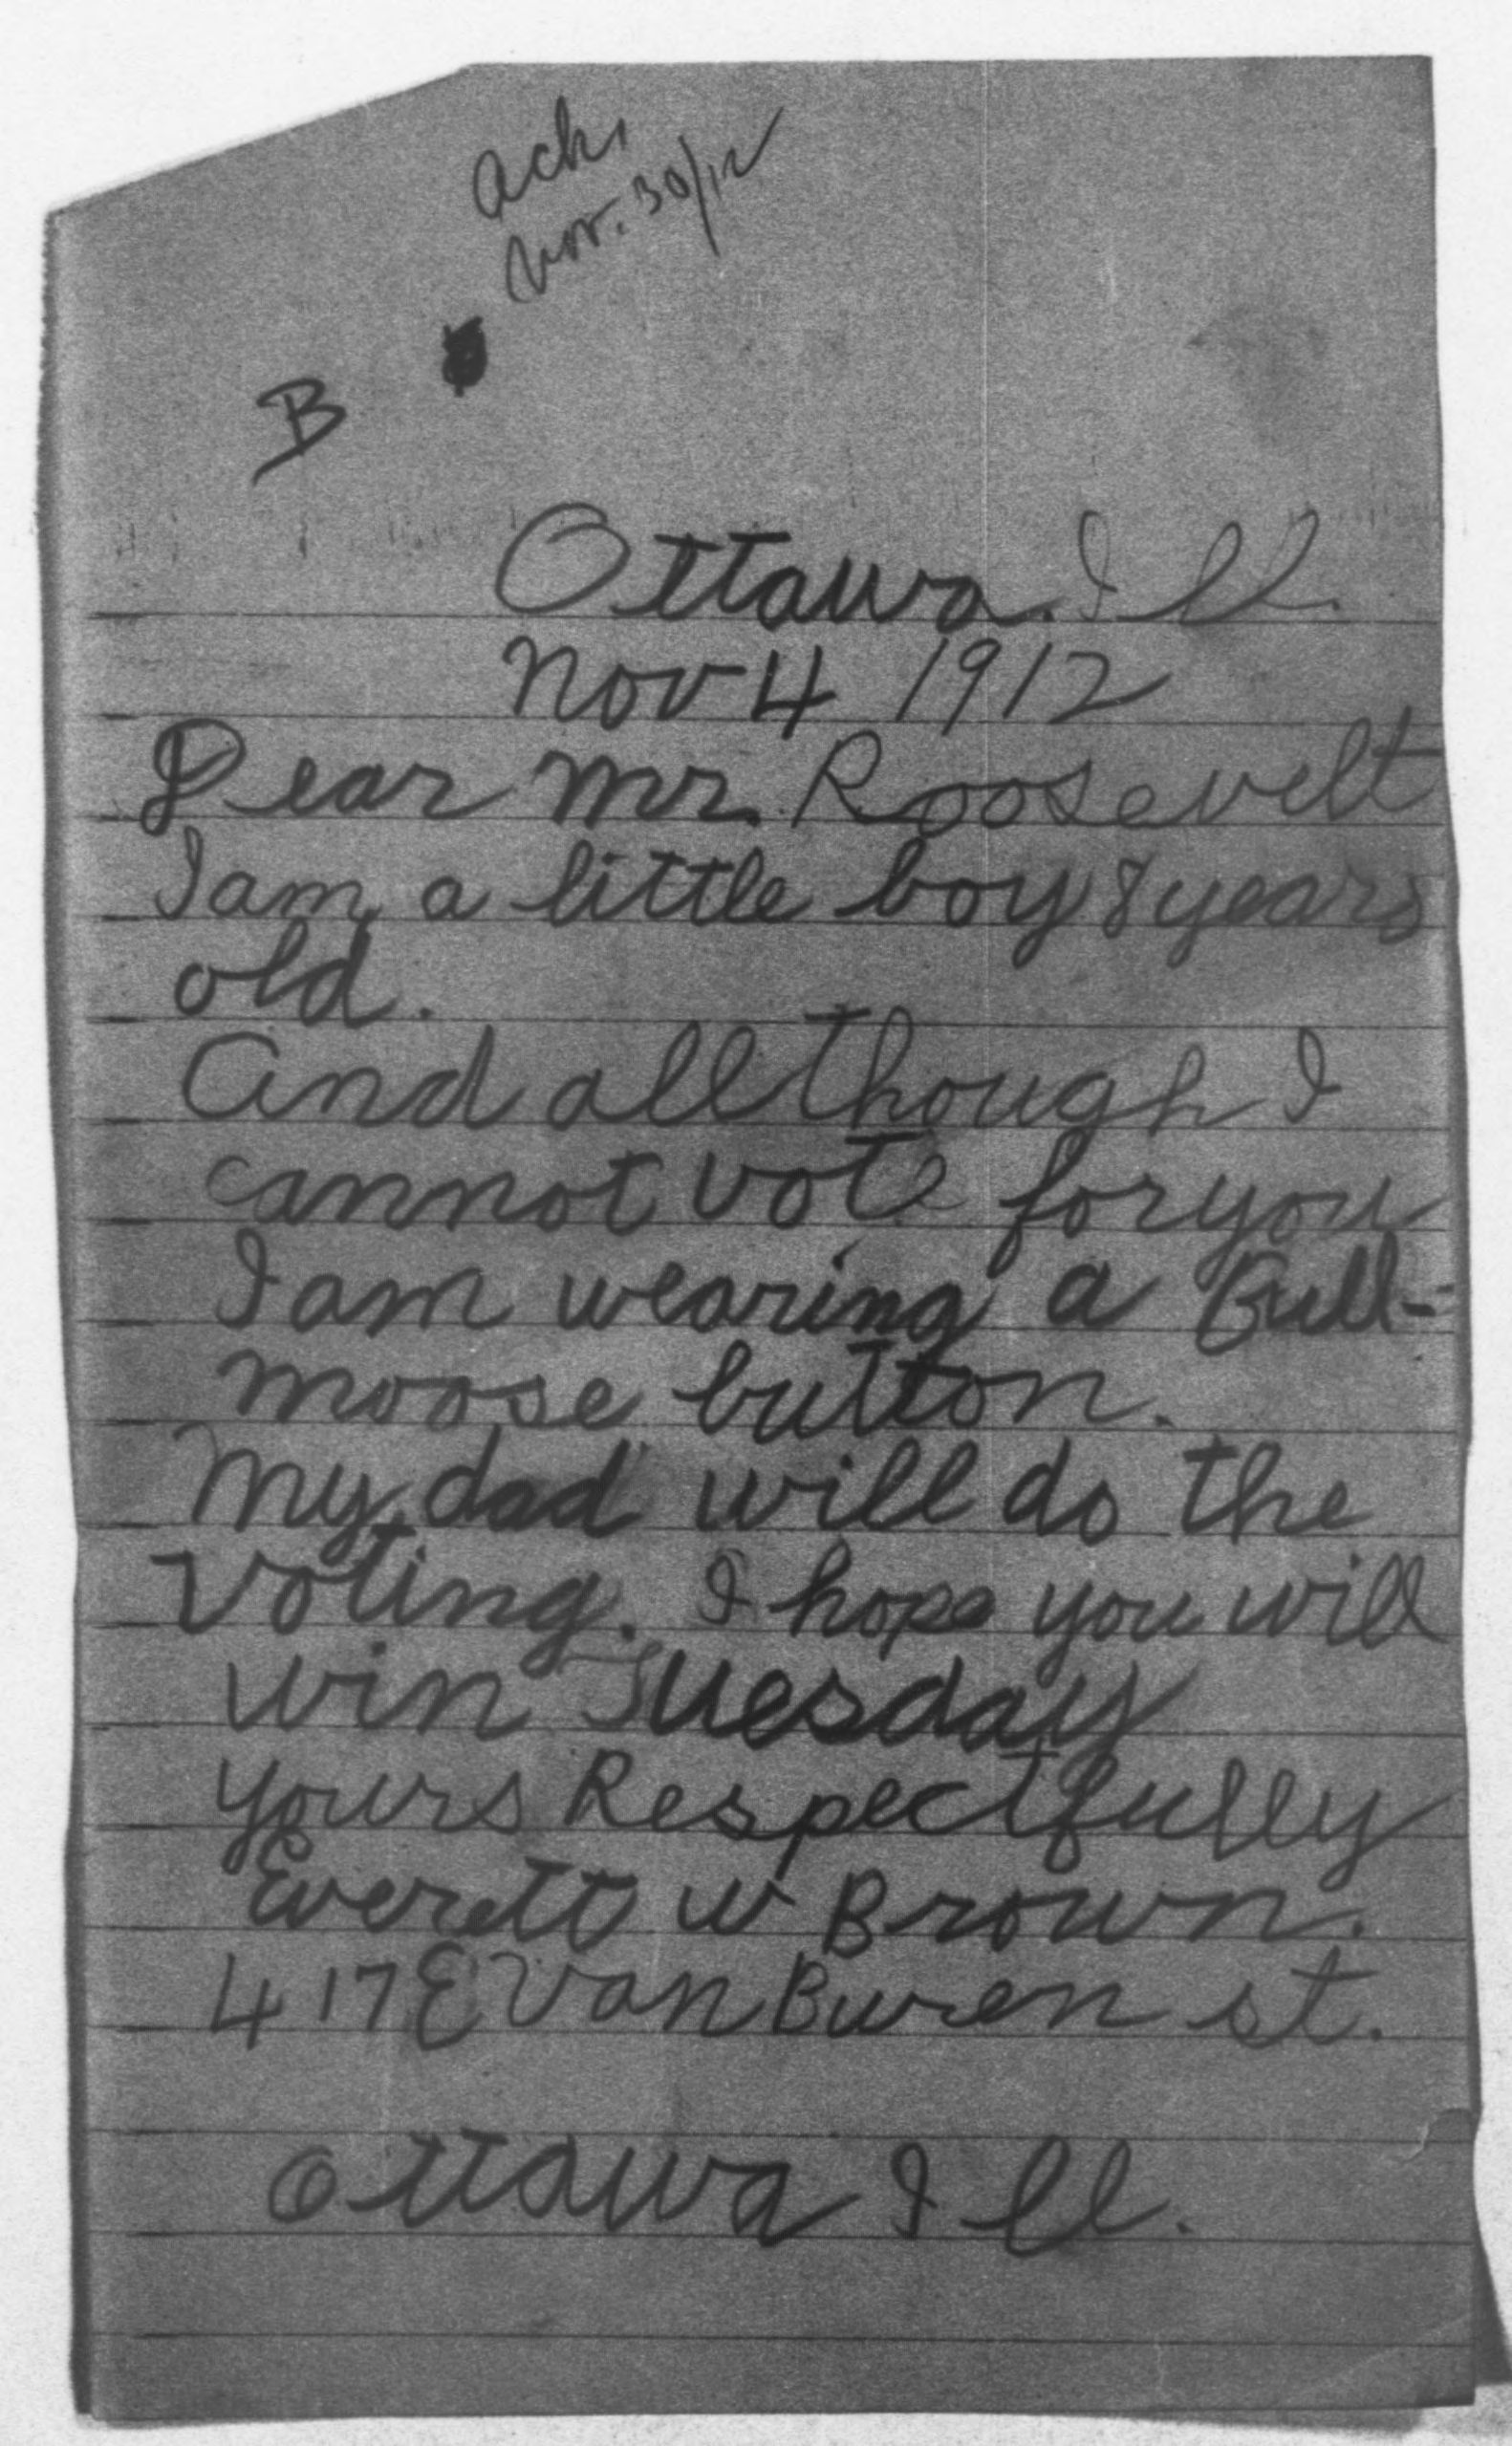 ack.
Nov. 30/12
B
Ottawa. Ill.
Nov 4 1912
Dear Mr. Roosevelt
I am a little boy 8 years
old.
And allthough I
cannot vote for you
I am wearing a Bull-
moose button.
My dad will do the
Voting. I hope you will
win Tuesday
yours Respectfully
Everett W Brown.
417 E Van Buren st.
Ottawa Ill.